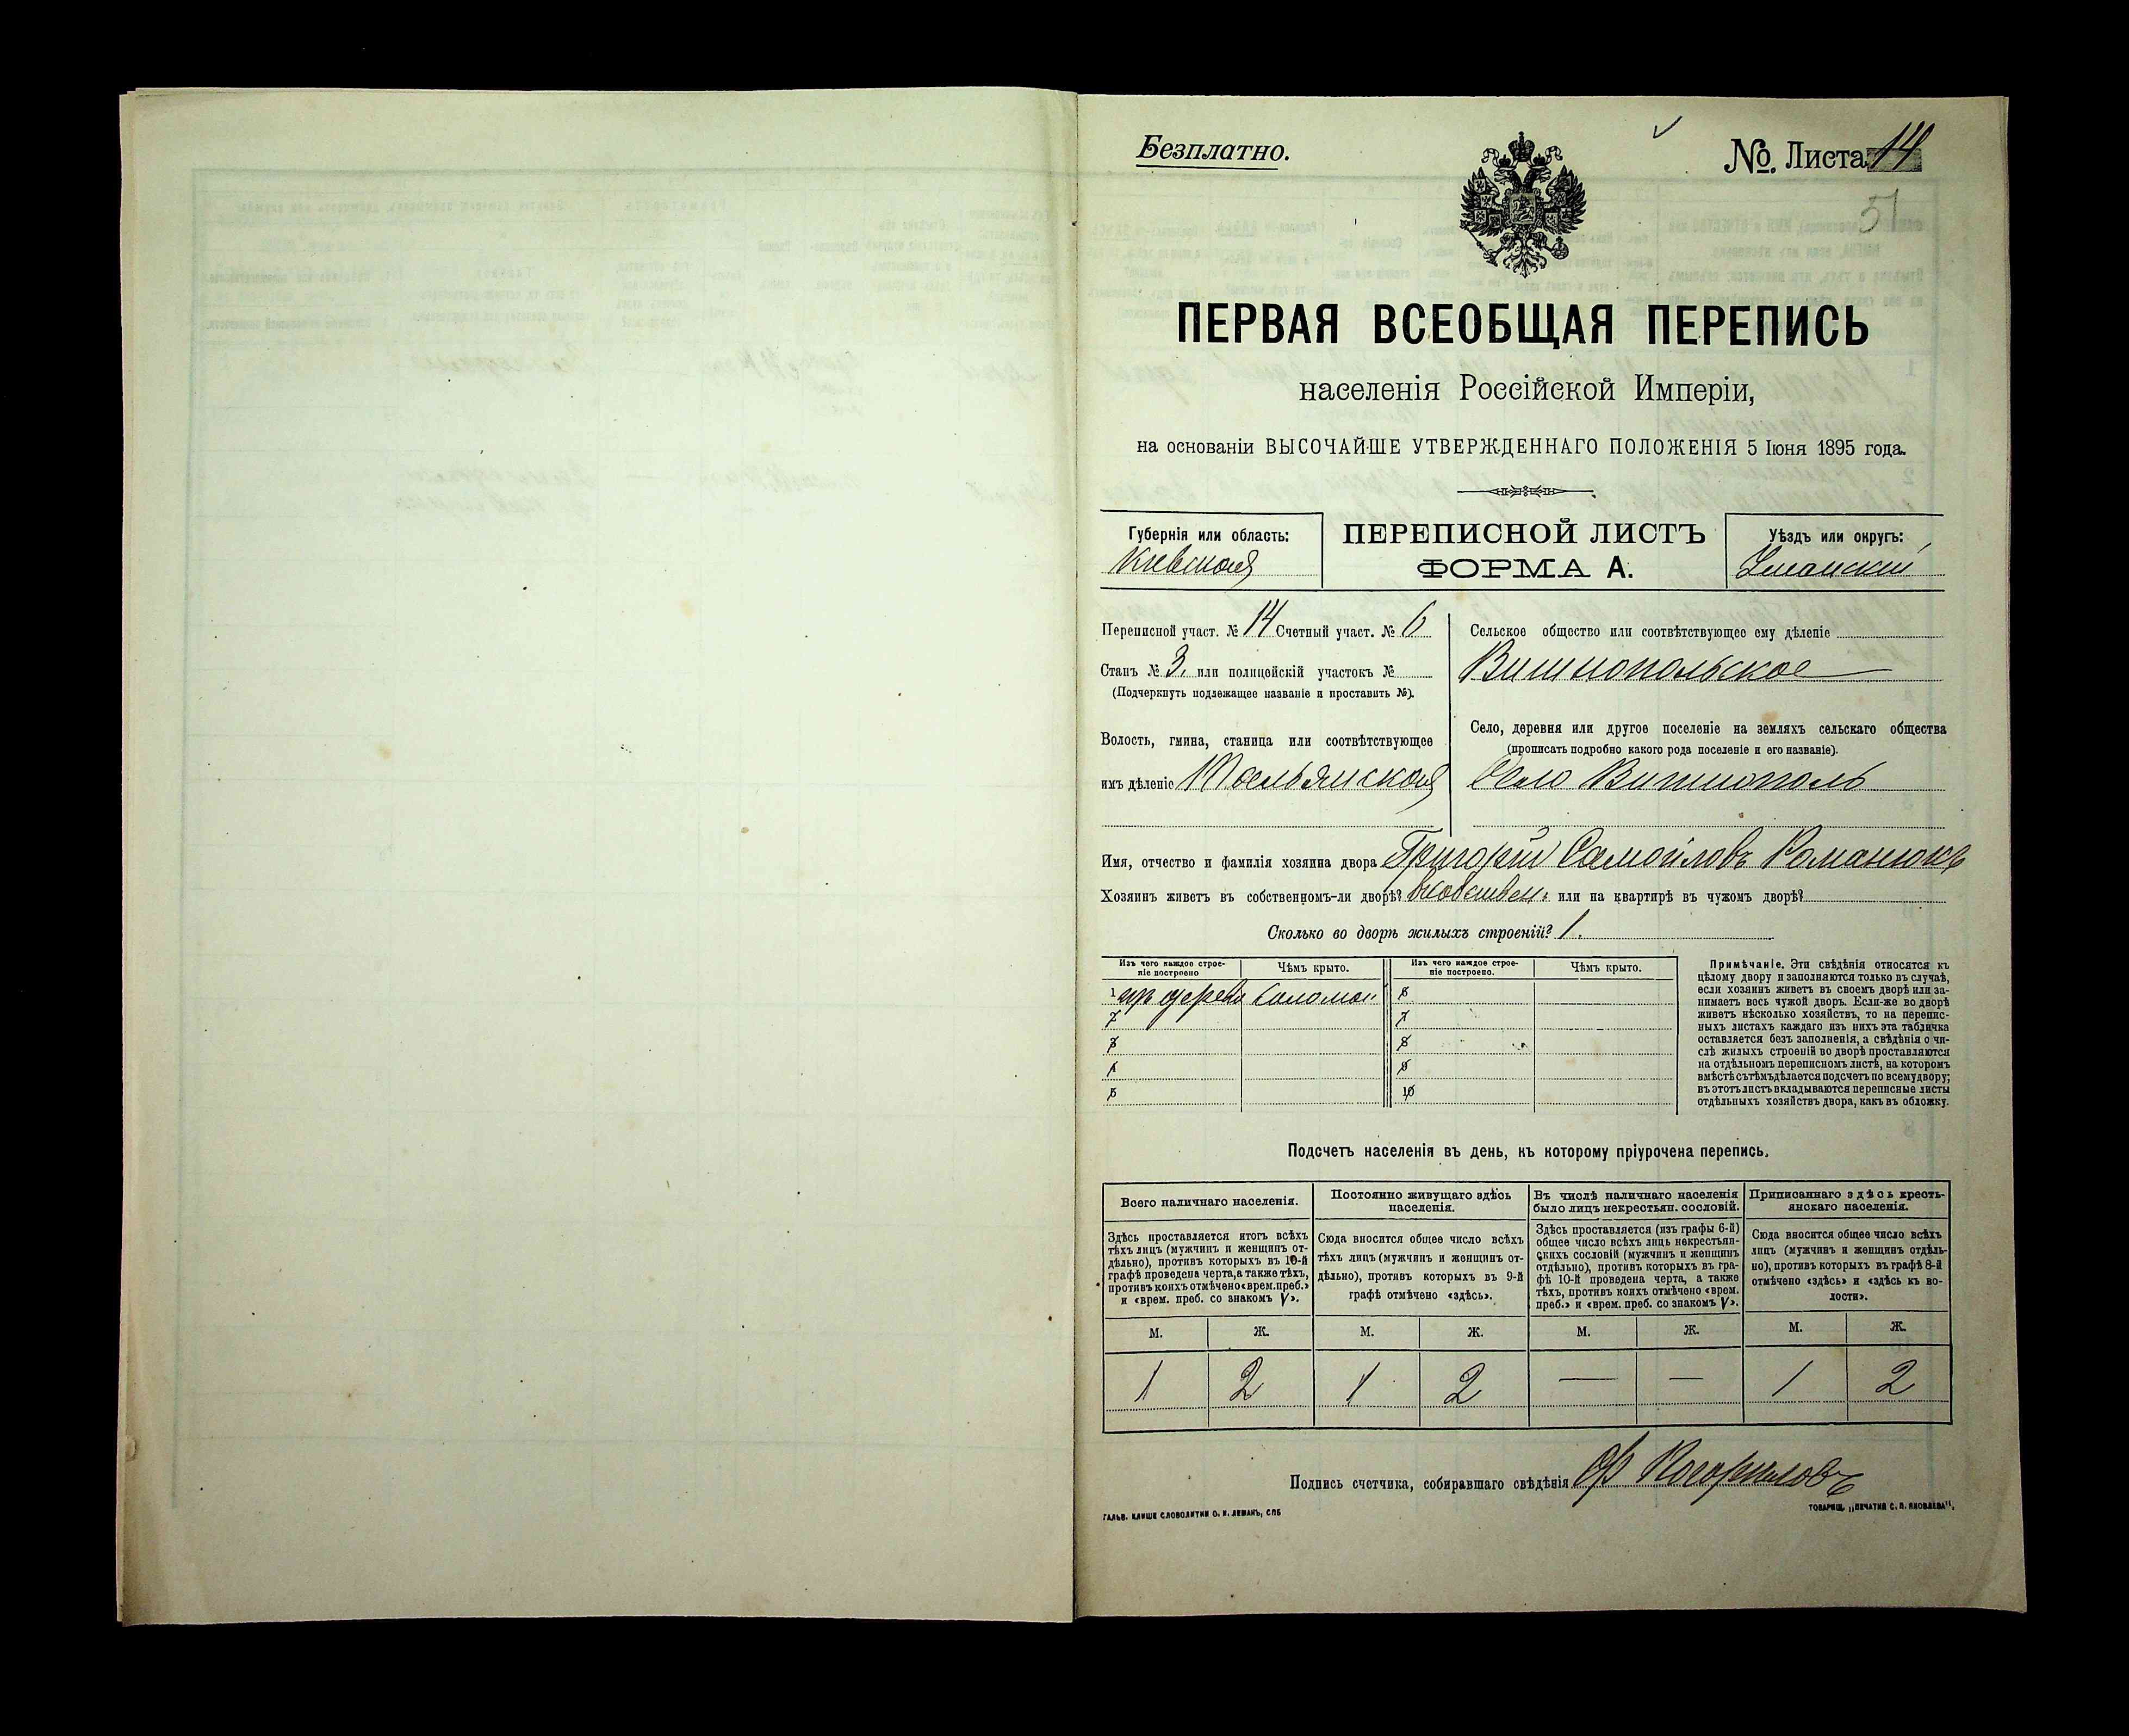 Безплатно.
№. Листа 14
51
ПЕРВАЯ ВСЕОБЩАЯ ПЕРЕПИСЬ
населенія Россійской Имперіи,
на основаніи ВЫСОЧАЙШЕ УТВЕРЖДЕННАГО ПОЛОЖЕНІЯ 5 Іюня 1895 года.
Губернія или область:
Кіевская
ПЕРЕПИСНОЙ ЛИСТЪ
ФОРМА А.
Уѣздъ или округъ:
Уманскій
Переписной участ. № 14 Счетный участ. № 6
Станъ № 3, или полицейскій участокъ №
(Подчеркнуть подлежащее названіе и проставить №).
Волость, гмина, станица или соотвѣтствующее
имъ дѣленіе Тальянская
Сельское общество или соотвѣтствующее ему дѣленіе
Вишнопольское
Село, деревня или другое поселеніе на земляхъ сельскаго общества
(прописать подробно какого рода поселеніе и его названіе).
Село Вишнополь
Имя, отчество и фамилія хозяина двора Григорій Самойловъ Романюкъ
Хозяинъ живетъ въ собственномъ-ли дворѣ? въ собствен. или на квартирѣ въ чужомъ дворѣ?
Сколько во дворѣ жилыхъ строеній? 1.
Изъ чего каждое строе-
ніе построено
Чѣмъ крыто.
Изъ чего каждое строе-
ніе построено.
Чѣмъ крыто.
1 изъ дерева соломой
6
2
7
3
8
4
9
5
10
Примѣчаніе. Эти свѣдѣнія относятся къ
цѣлому двору и заполняются только въ случаѣ,
если хозяинъ живетъ въ своемъ дворѣ или за-
нимаетъ весь чужой дворъ. Если-же во дворѣ
живетъ нѣсколько хозяйствъ, то на перепис-
ныхъ листахъ каждаго изъ нихъ эта табличка
оставляется безъ заполненія, а свѣдѣнія о чи-
слѣ жилыхъ строеній во дворѣ проставляются
на отдѣльномъ переписномъ листѣ, на которомъ
вмѣстѣ съ тѣмъ дѣлается подсчетъ по всему двору;
въ этотъ листъ вкладываются переписные листы
отдѣльныхъ хозяйствъ двора, какъ въ обложку.
Подсчетъ населенія въ день, къ которому пріурочена перепись.
Всего наличнаго населенія.
Постоянно живущаго здѣсь
населенія.
Въ числѣ наличнаго населенія
было лицъ некрестьян. сословій.
Приписаннаго здѣсь кресть-
янскаго населенія.
Здѣсь проставляется итогъ всѣхъ
тѣхъ лицъ (мужчинъ и женщинъ от-
дѣльно), противъ которыхъ въ 10-й
графѣ проведена черта, а также тѣхъ,
противъ коихъ отмѣчено «врем. преб.»
и «врем. преб. со знакомъ V».
Сюда вносится общее число всѣхъ
тѣхъ лицъ (мужчинъ и женщинъ от-
дѣльно), противъ которыхъ въ 9-й
графѣ отмѣчено «здѣсь».
Здѣсь проставляется (изъ графы 6-й)
общее число всѣхъ лицъ некрестьян-
скихъ сословій (мужчинъ и женщинъ
отдѣльно), противъ которыхъ въ гра-
фѣ 10-й проведена черта, а также
тѣхъ, противъ коихъ отмѣчено «врем.
преб.» и «врем. преб. со знакомъ V».
Сюда вносится общее число всѣхъ
лицъ (мужчинъ и женщинъ отдѣль-
но), противъ которыхъ въ графѣ 8-й
отмѣчено «здѣсь» и «здѣсь къ во-
лости».
М. Ж. М. Ж. М. Ж. М. Ж.
1 2 1 2 — — 1 2
Подпись счетчика, собиравшаго свѣдѣнія
ГАЛЬВ. КЛИШЕ СЛОВОЛИТНИ О. И. ЛЕМАНЪ, СПБ
ТОВАРИЩ. „ПЕЧАТНЯ С. П. ЯКОВЛЕВА“.